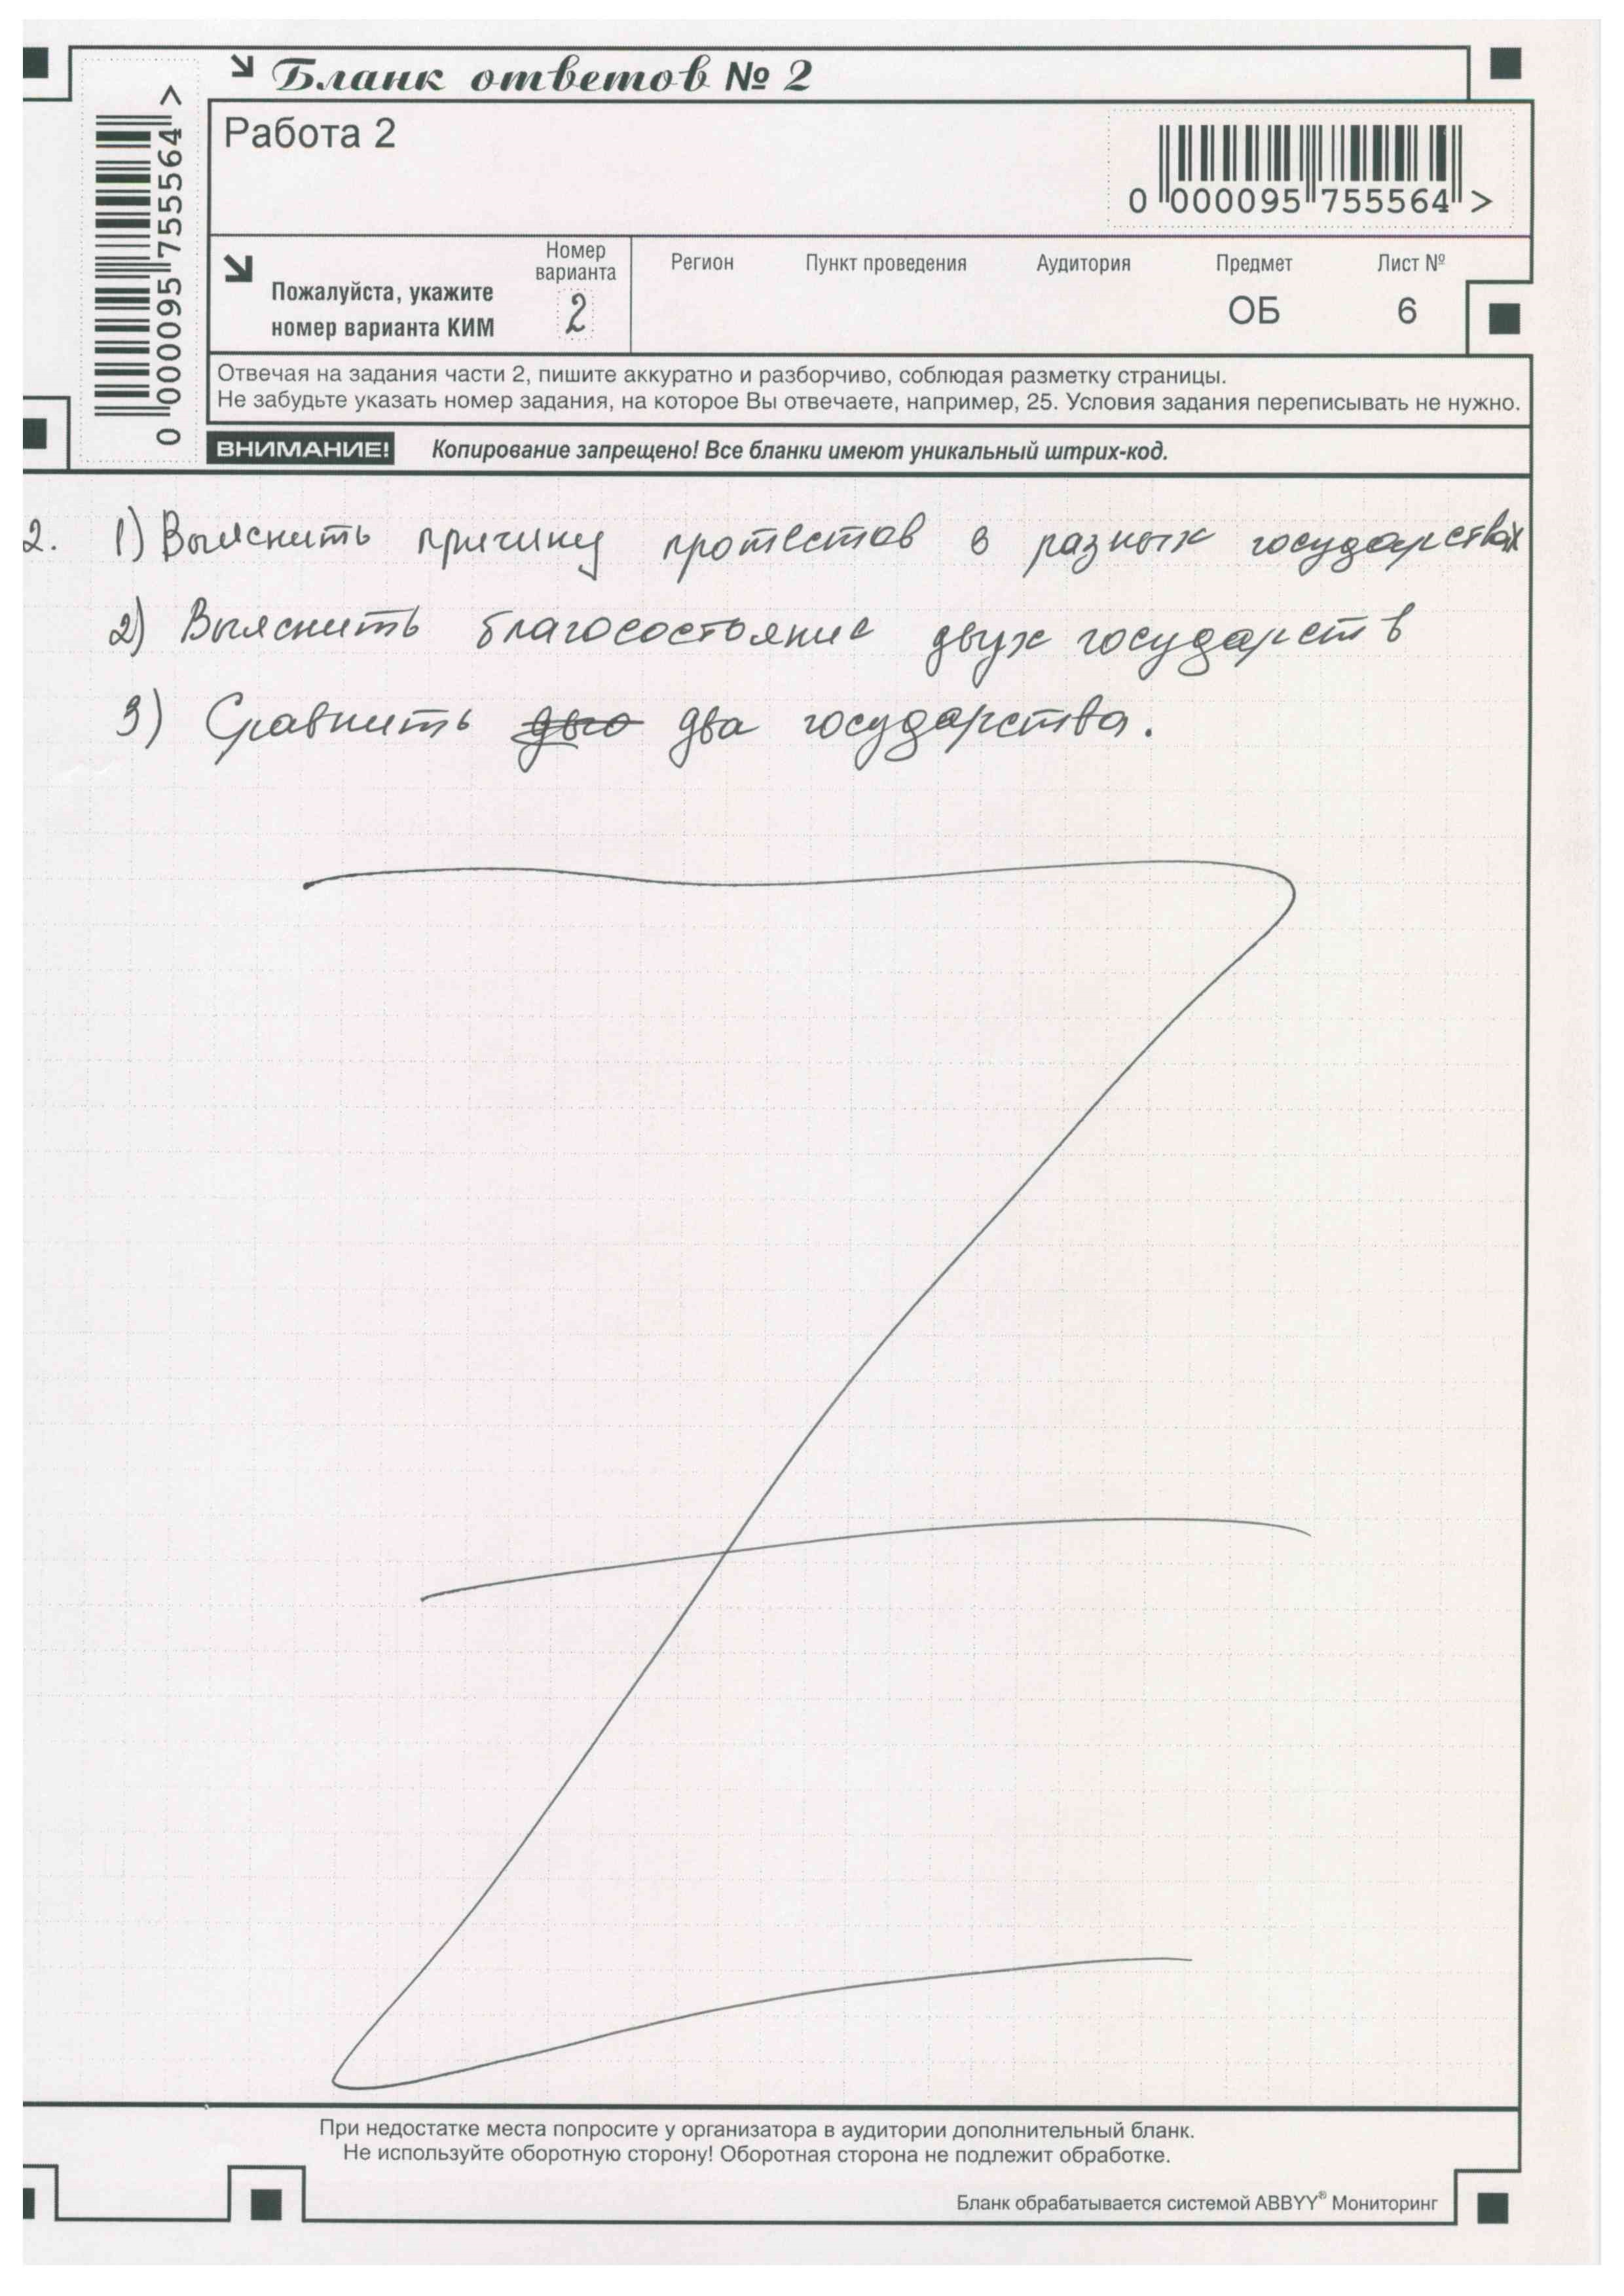 Бланк ответов № 2
Работа 2
0 000095 755564 >
0 000095 755564 >
Пожалуйста, укажите
номер варианта КИМ
Номер
варианта
2
Регион
Пункт проведения
Аудитория
Предмет
ОБ
Лист №
6
Отвечая на задания части 2, пишите аккуратно и разборчиво, соблюдая разметку страницы.
Не забудьте указать номер задания, на которое Вы отвечаете, например, 25. Условия задания переписывать не нужно.
ВНИМАНИЕ! Копирование запрещено! Все бланки имеют уникальный штрих-код.
2. 1) Выяснить причину протестов в разных государствах
2) Выяснить благосостояние двух государств
3) Сравнить два государства.
При недостатке места попросите у организатора в аудитории дополнительный бланк.
Не используйте оборотную сторону! Оборотная сторона не подлежит обработке.
Бланк обрабатывается системой ABBYY® Мониторинг